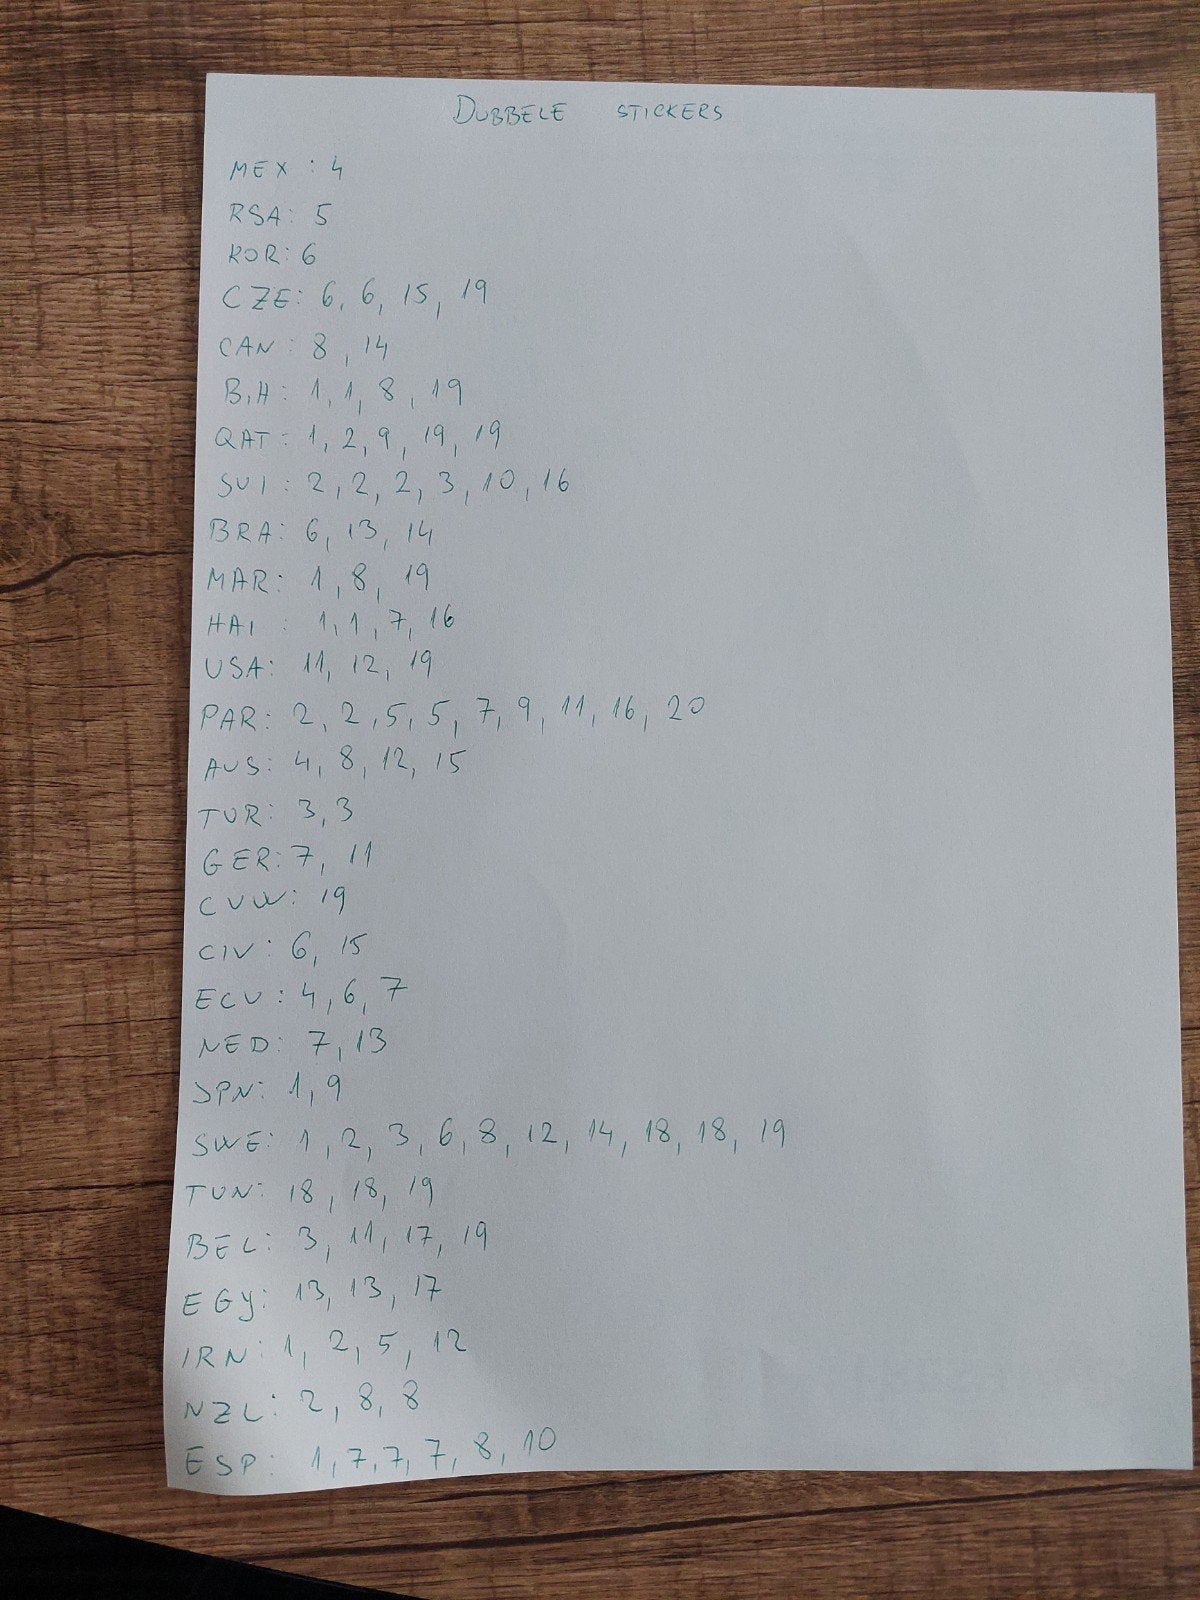 DUBBELE STICKERS
MEX : 4
RSA: 5
KOR: 6
CZE: 6, 6, 15, 19
CAN : 8, 14
BiH : 1, 1, 8, 19
QAT : 1, 2, 9, 19, 19
SUI : 2, 2, 2, 3, 10, 16
BRA: 6, 13, 14
MAR: 1, 8, 19
HAI : 1, 1, 7, 16
USA: 11, 12, 19
PAR: 2, 2, 5, 5, 7, 9, 11, 16, 20
AUS: 4, 8, 12, 15
TUR: 3, 3
GER: 7, 11
CUW: 19
CIV: 6, 15
ECU: 4, 6, 7
NED: 7, 13
JPN: 1, 9
SWE: 1, 2, 3, 6, 8, 12, 14, 18, 18, 19
TUN: 18, 18, 19
BEL: 3, 11, 17, 19
EGY: 13, 13, 17
IRN: 1, 2, 5, 12
NZL: 2, 8, 8
ESP: 1, 7, 7, 7, 8, 10